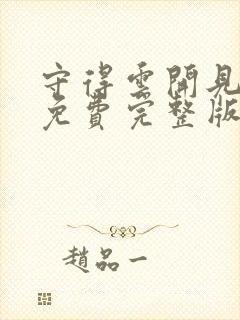 守得雲開見
免費完整版
趙品一